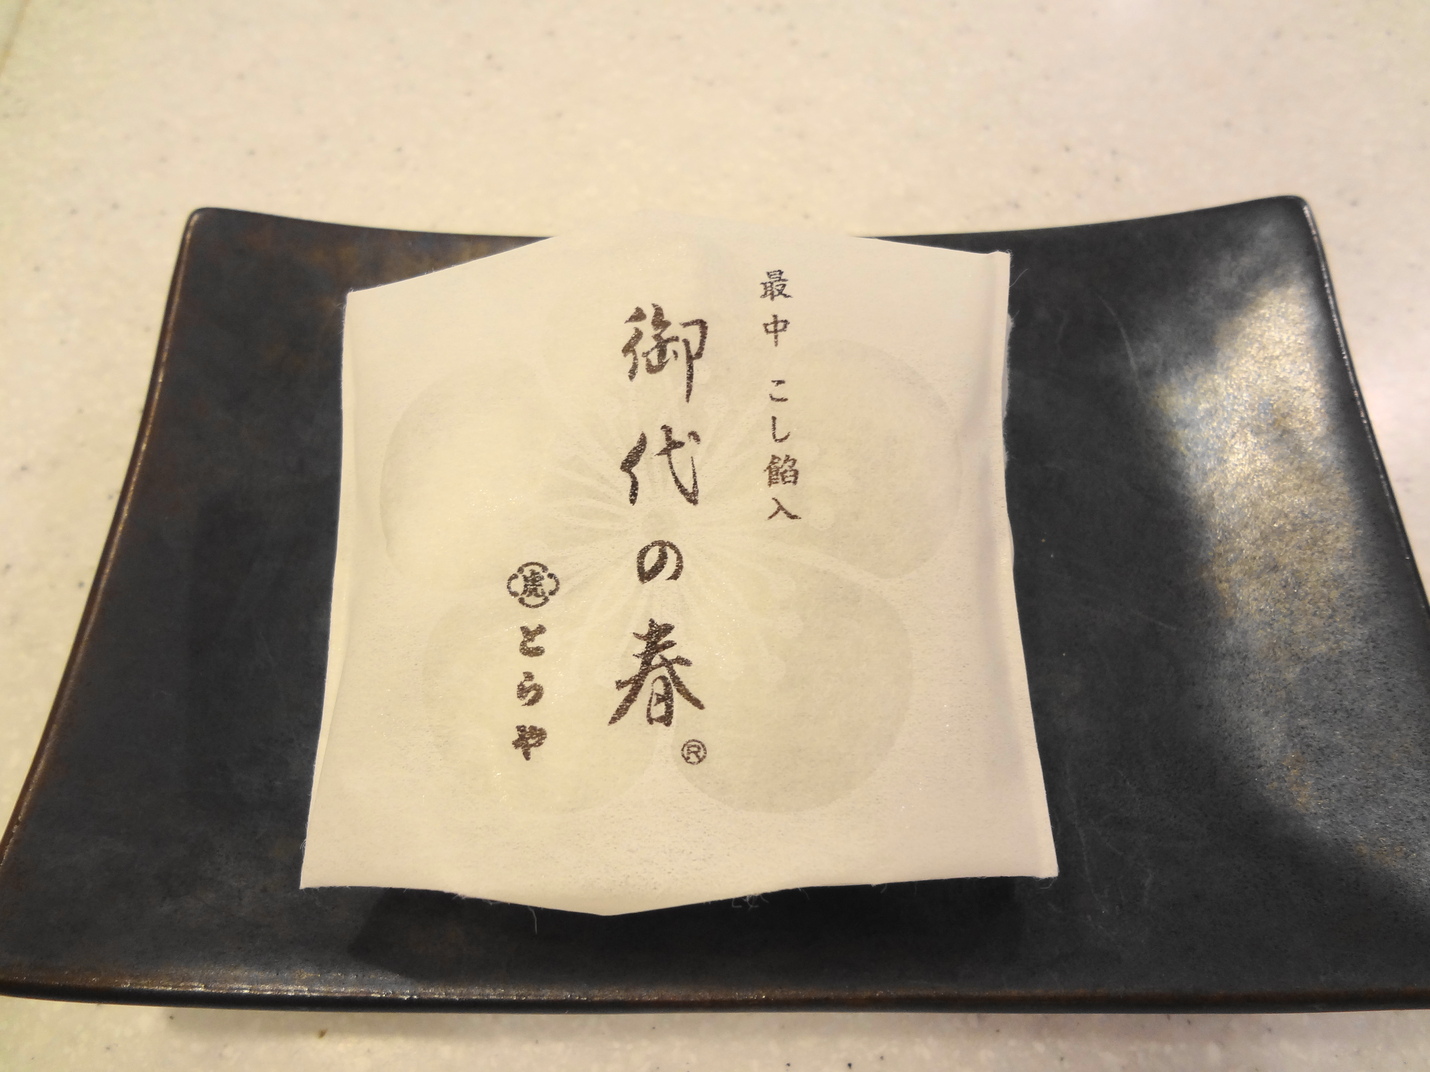 最中 こし餡入
御代の春
®
虎
とらや